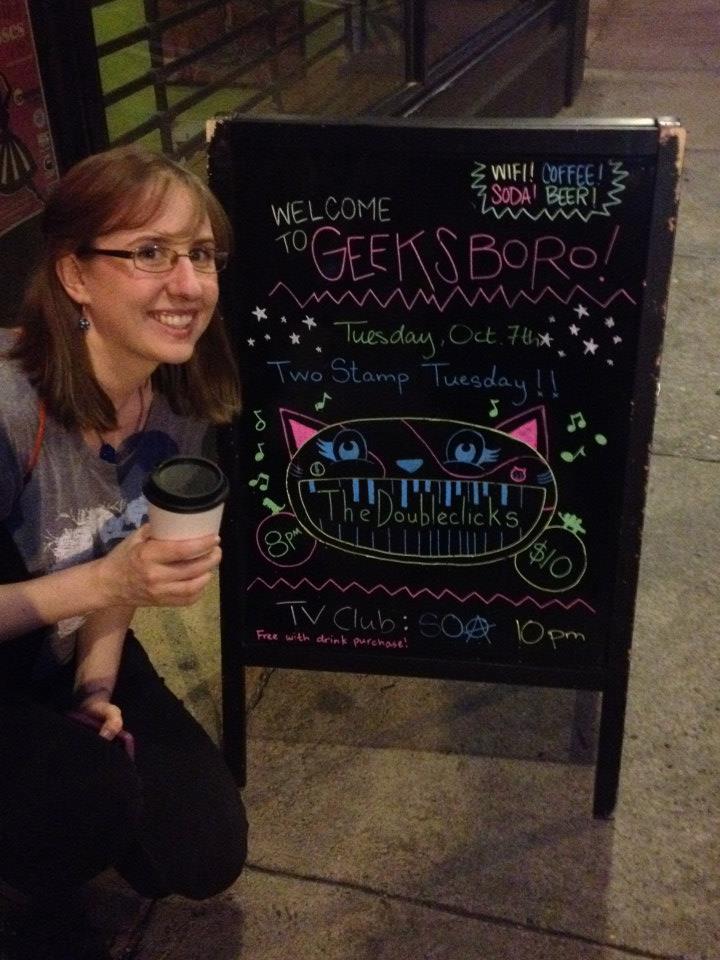 WIFI! COFFEE!
SODA! BEER!
WELCOME
TO GEEKSBORO!
Tuesday, Oct. 7th
Two Stamp Tuesday!!
The Doubleclicks
8pm
$10
TV Club: SOA 10pm
Free with drink purchase!